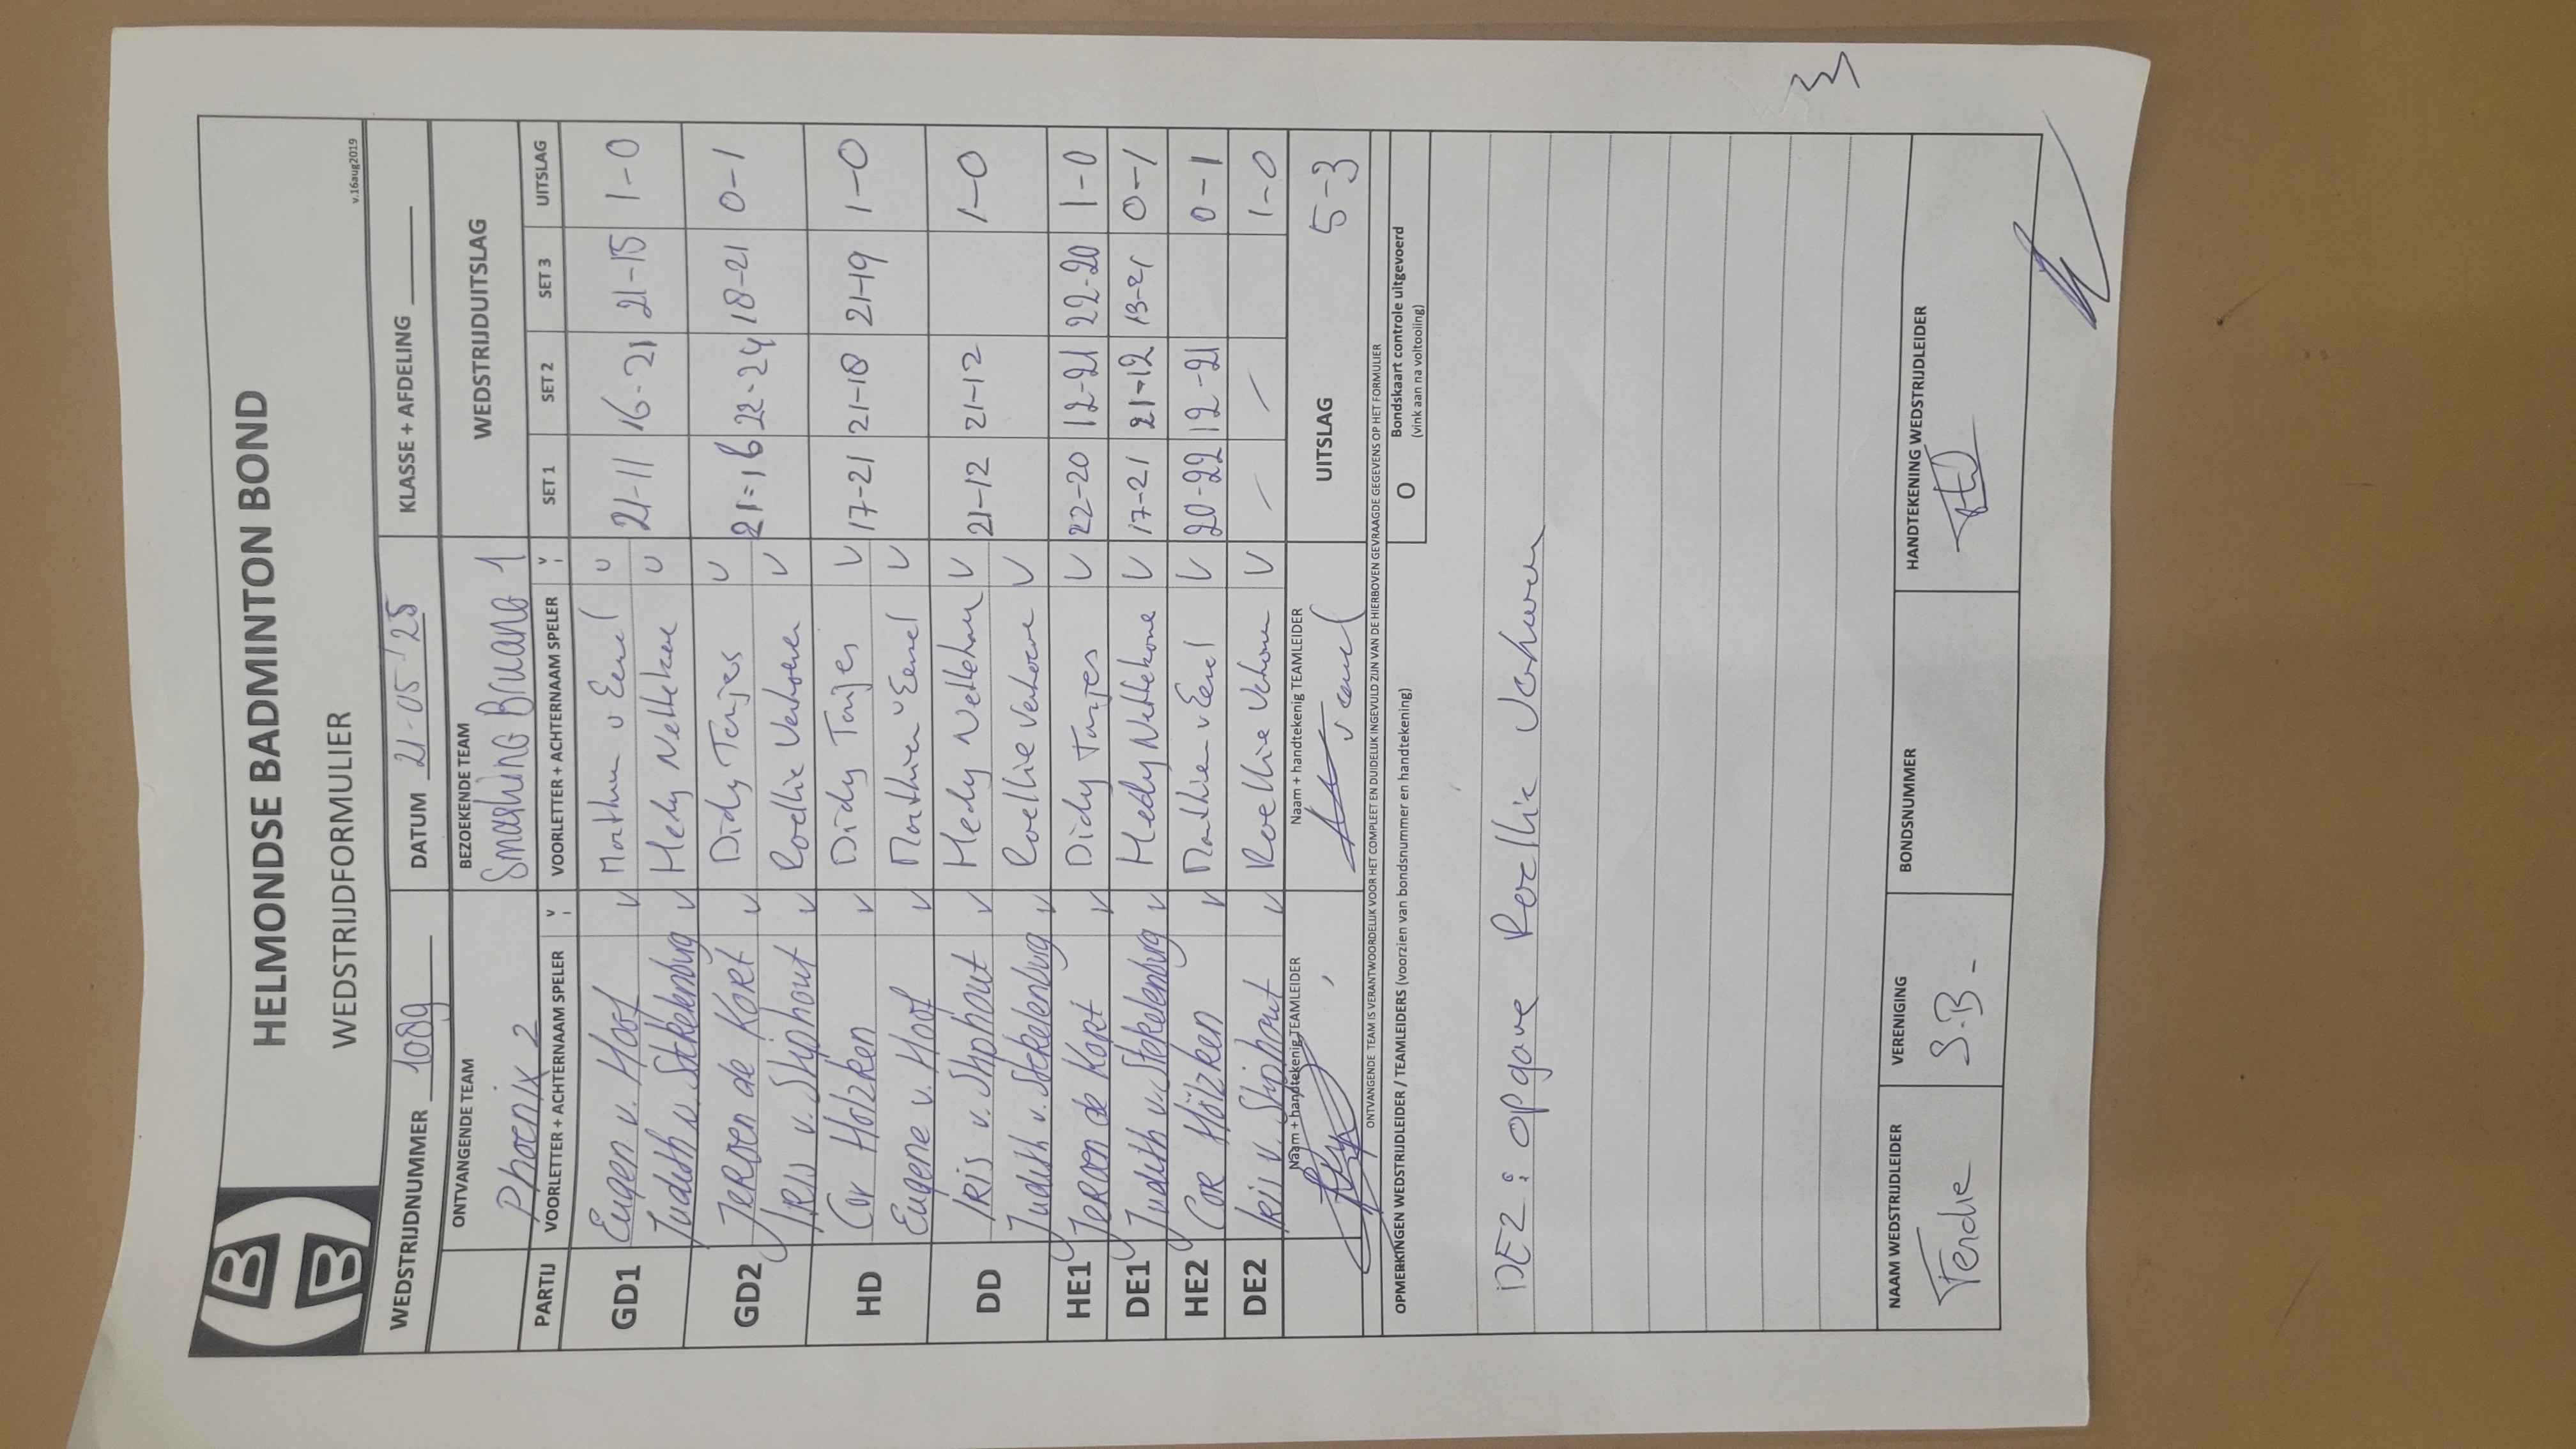 HELMONDSE BADMINTON BOND
WEDSTRIJDFORMULIER
v.16aug2019
WEDSTRIJDNUMMER 1089 DATUM 21-05-'25 KLASSE + AFDELING
ONTVANGENDE TEAM BEZOEKENDE TEAM WEDSTRIJDUITSLAG
Phoenix 2 Smashing Bruans 1
PARTIJ VOORLETTER + ACHTERNAAM SPELER V VOORLETTER + ACHTERNAAM SPELER V SET 1 SET 2 SET 3 UITSLAG
GD1 Eugen v. Hoof V v Eenel V 21-11 16-21 21-15 1-0
Judith v. Stekelenburg V Hedy V
GD2 Jeroen de Kort V Didy Tonjes V 21-16 22-24 18-21 0-1
Iris v. Stiphout V Roellie Verhoeven V
HD Cor Holzken V Didy Tonjes V 17-21 21-18 21-19 1-0
Eugene v. Hoof V Mathieu v Eenel V
DD Iris v. Stiphout V Hedy V 21-12 21-12 1-0
Judith v. Stekelenburg V Roellie Verhoeven V
HE1 Jeroen de Kort V Didy Tonjes V 22-20 12-21 22-20 1-0
DE1 Judith v. Stekelenburg V Hedy V 17-21 21-12 13-21 0-1
HE2 Cor Hölzken V Mathieu v Eenel V 20-22 12-21 0-1
DE2 Iris v. Stiphout V Roellie Verhoeven V / / 1-0
Naam + handtekenig TEAMLEIDER Naam + handtekenig TEAMLEIDER UITSLAG 5-3
ONTVANGENDE TEAM IS VERANTWOORDELIJK VOOR HET COMPLEET EN DUIDELIJK INGEVULD ZIJN VAN DE HIERBOVEN GEVRAAGDE GEGEVENS OP HET FORMULIER
OPMERKINGEN WEDSTRIJDLEIDER / TEAMLEIDERS (voorzien van bondsnummer en handtekening) O Bondskaart controle uitgevoerd
(vink aan na voltooiing)
DE2: opgave Roellie Verhoeven
NAAM WEDSTRIJDLEIDER VERENIGING BONDSNUMMER HANDTEKENING WEDSTRIJDLEIDER
Ferdie S.B-